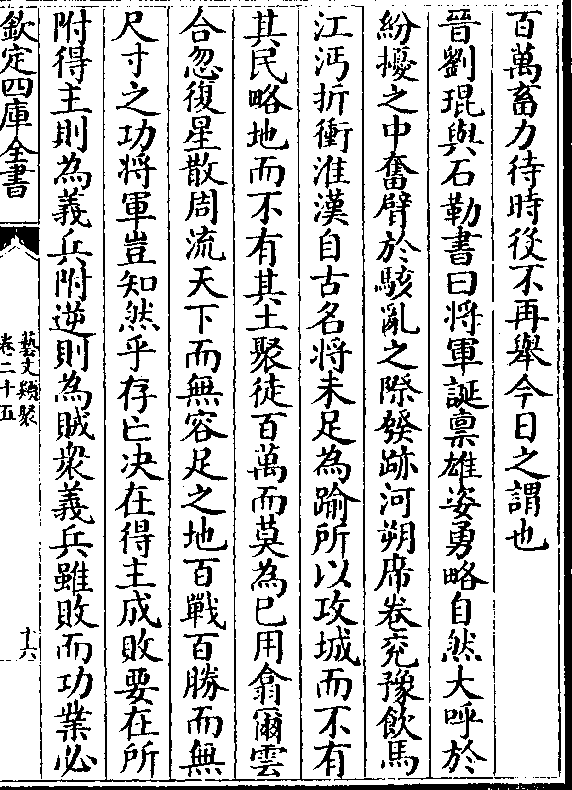 百萬畜力待時後不再舉今日之謂也
晉劉琨與石勒書曰將軍誕禀雄姿勇略自然大呼於
紛擾之中奮臂於駭亂之際發跡河朔席卷兖豫飲馬
江沔折衝淮漢自古名將未足為踰所以攻城而不有
其民略地而不有其土聚徒百萬而莫為已用翕爾雲
合忽復星散周流天下而無容足之地百戰百勝而無
尺寸之功将軍豈知然乎存亡决在得主成敗要在所
附得主則為義兵附逆則為賊衆義兵雖敗而功業必
欽定四庫全書
藝文類聚
卷二十五
十六